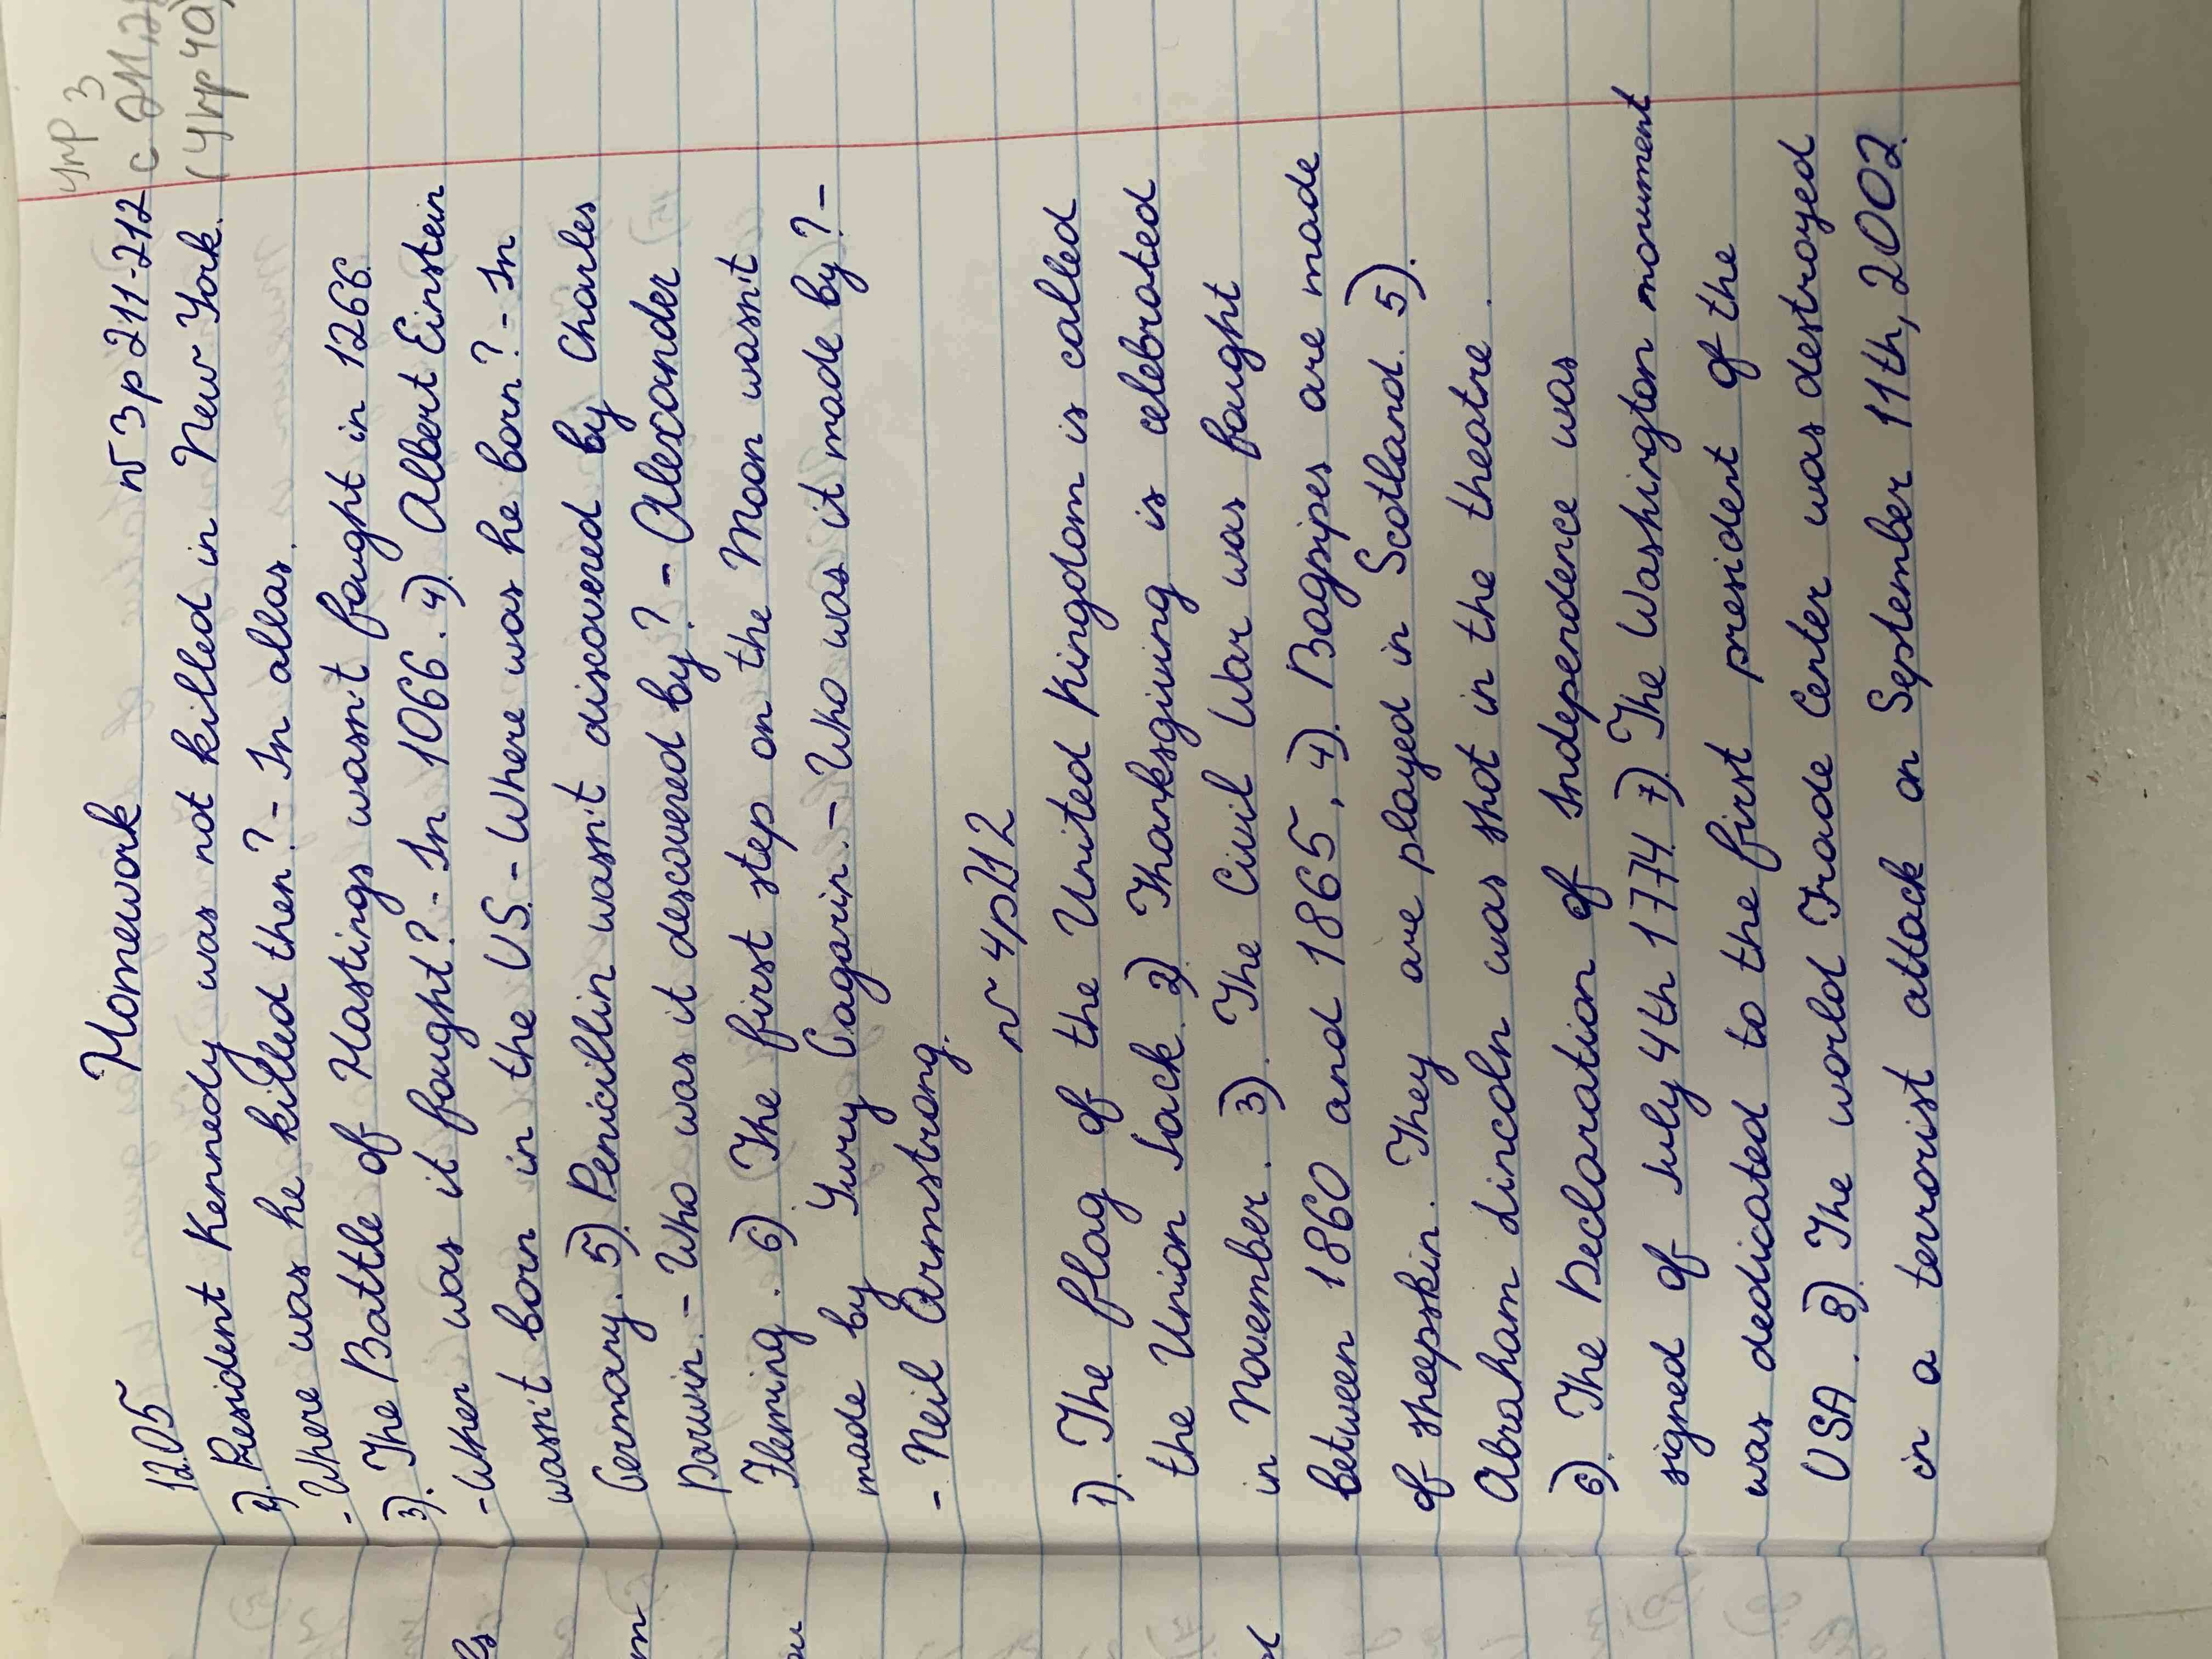 12.05 Homework № 3 p 211-212
2). President Kennedy was not killed in New York.
- Where was he killed then? - In allas.
3). The Battle of Hastings wasn't fought in 1266.
- When was it fought? - In 1066. 4). Albert Einstein
wasn't born in the US. - Where was he born? - In
Germany. 5). Penicillin wasn't discovered by Charles
Darwin. - Who was it descovered by? - Alexander
Fleming. 6). The first step on the Moon wasn't
made by Yury Gagarin. - Who was it made by? -
- Neil Armstrong.
№ 4 p 212
1). The flag of the United Kingdom is called
the Union Jack. 2) Thanksgiving is celebrated
in November. 3). The Civil War was fought
between 1860 and 1865. 4). Bagpipes are made
of sheepskin. They are played in Scotland. 5).
Abraham Lincoln was shot in the theatre.
6). The Declaration of Independence was
signed of July 4th 1774. 7). The Washington monument
was dedicated to the first president of the
USA. 8). The world Trade Center was destroyed
in a terrorist attack on September 11th, 2002.
упр 3
с 211,2
(Упр 4а)